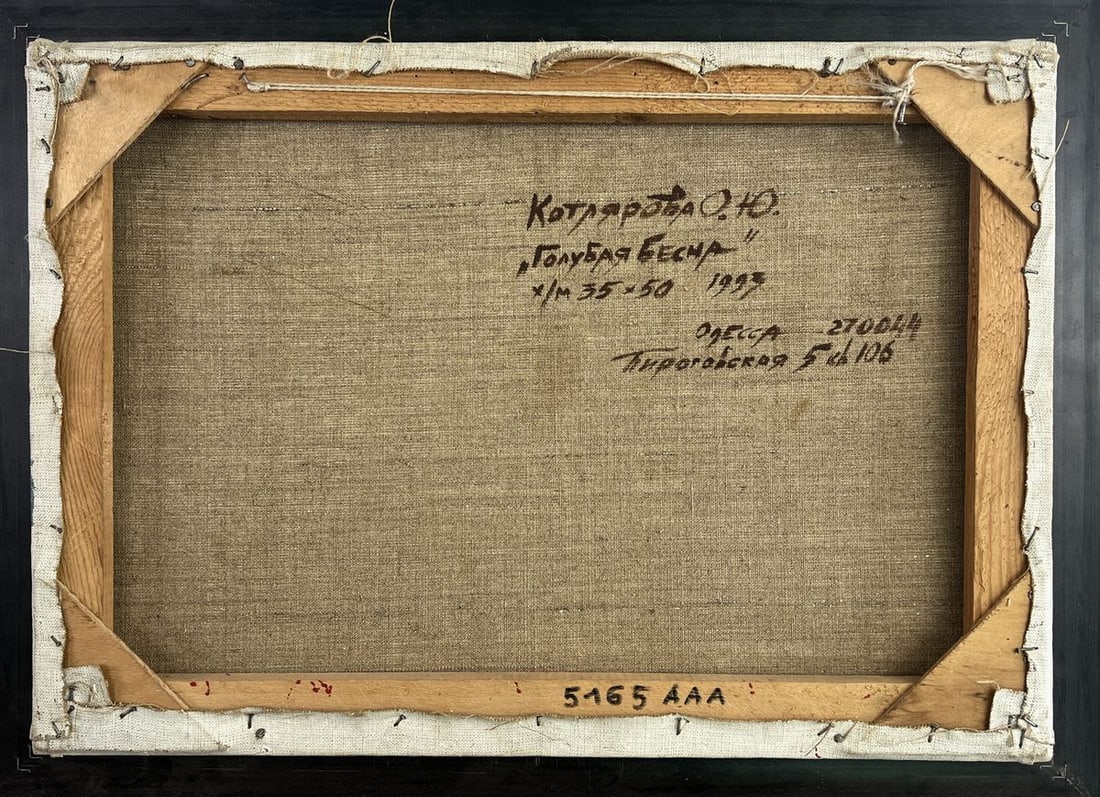 Котлярова О.Ю.
„Голубая Весна"
х/м 35×50 1993
Одесса 270044
Пироговская 5 кв 106
5165 AAA